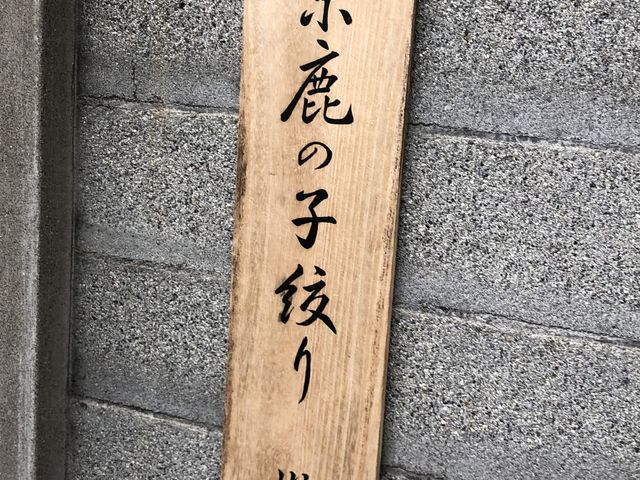 京鹿の子絞り